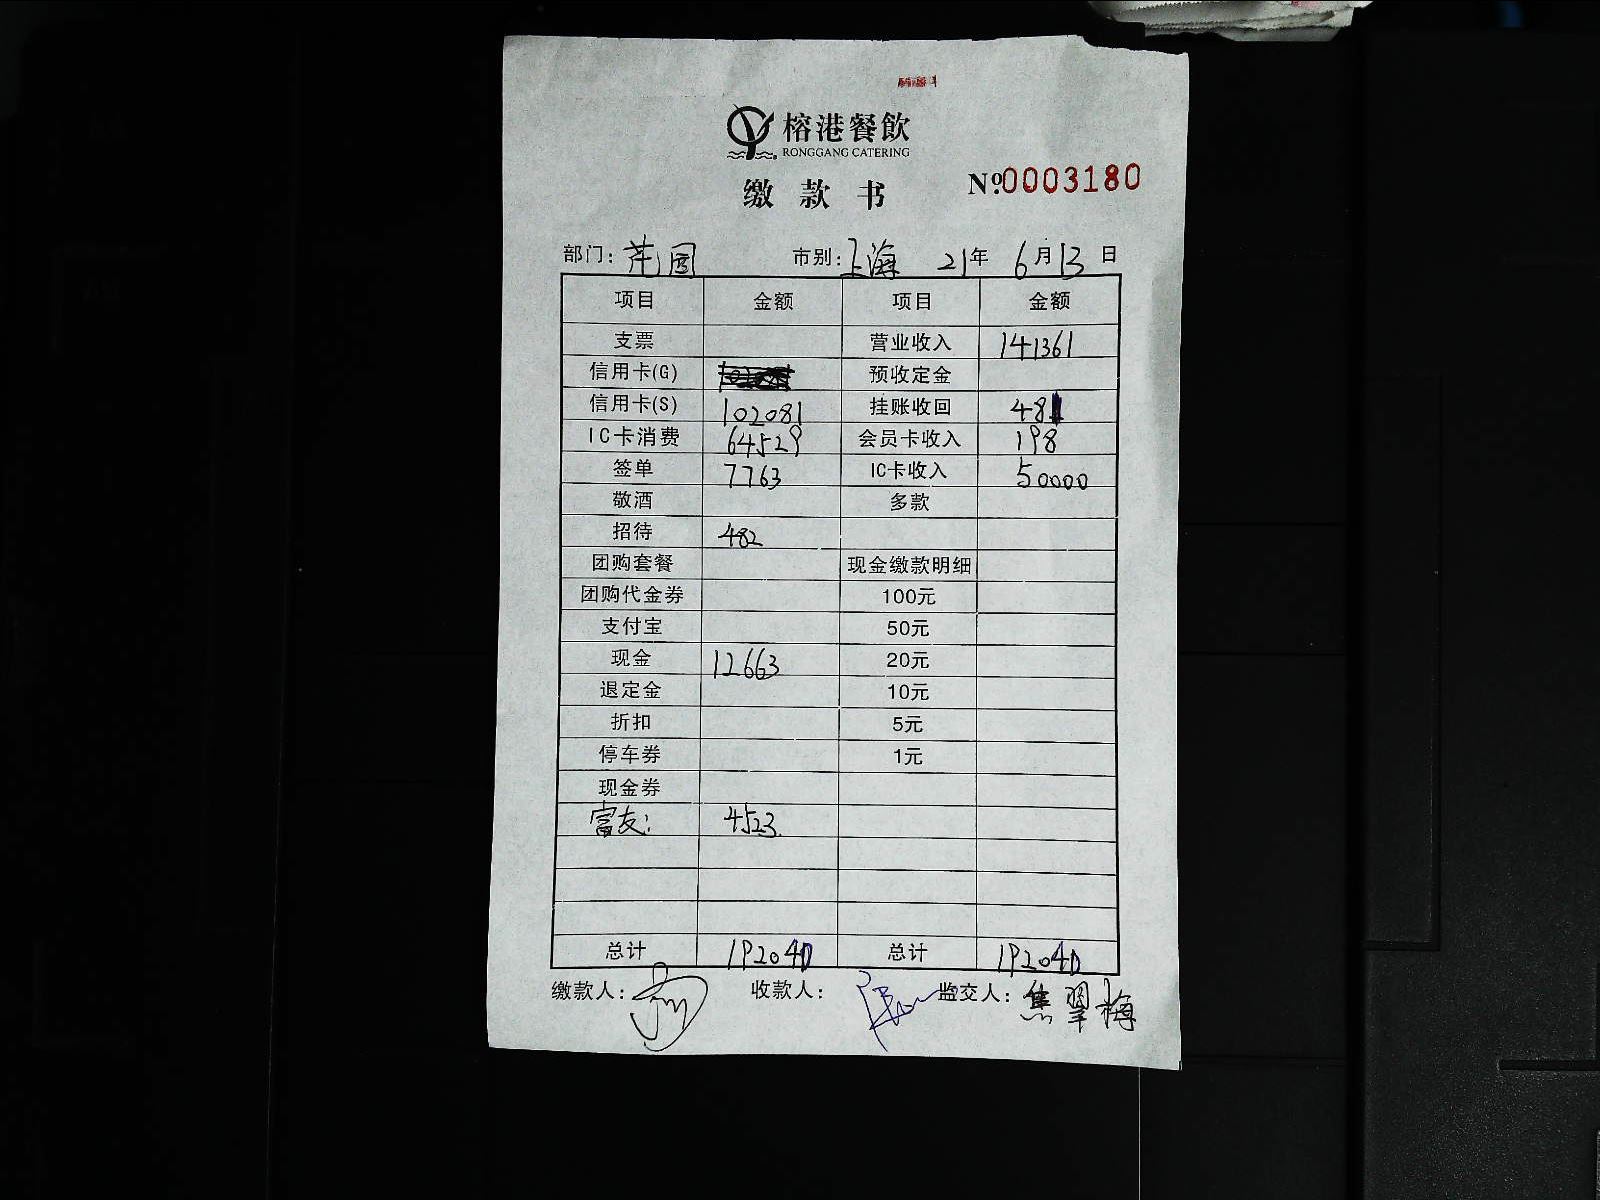 榕港餐飲
RONGGANG CATERING
缴款书 Nº:0003180
部门: 市别:上海 21年 6月13日
项目 金额 项目 金额
支票 营业收入 141361
信用卡(G) 预收定金
信用卡(S) 102081 挂账收回 481
IC卡消费 64529 会员卡收入 198
签单 7763 IC卡收入 50000
敬酒 多款
招待 482
团购套餐 现金缴款明细
团购代金券 100元
支付宝 50元
现金 12663 20元
退定金 10元
折扣 5元
停车券 1元
现金券
富友: 4523
总计 192040 总计 192040
缴款人: 收款人: 监交人: 焦翠梅